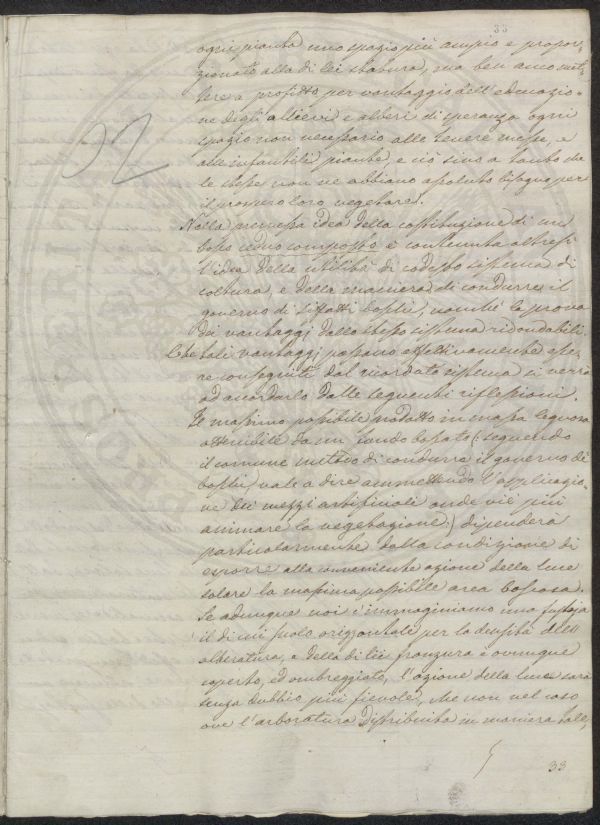 33
ogni pianta uno spazio più ampio e propor-
zionato alla di lei statura, ma ben anco met-
tere a profitto per vantaggio dell'educazio-
ne degli allievi e alberi di speranza ogni
spazio non necessario alle tenere messe, e
alle infantili piante, e ciò sino a tanto che
le stesse non ne abbiano assoluto bisogno per
il prospero loro vegetare.
Nella premessa idea della costituzione di un
bosco ceduo composto è contenuta altresì
l'idea della utilità di codesto sistema di
coltura, e della maniera di condurre il
governo di siffatti boschi, nonché le prove
dei vantaggi dallo stesso sistema ridondabili.
Che tali vantaggi possano effettivamente esse-
re conseguiti dal ricordato sistema ci verrà
ad accordarlo dalle seguenti riflessioni.
Il massimo possibile prodotto in massa legnosa
ottenibile da un fondo boscato (seguendo
il comune metodo di condurre il governo dei
boschi, vale a dire ammettendo l'applicazio-
ne dei mezzi artificiali onde vie più
animare la vegetazione) dipenderà
particolarmente dalla condizione di
esporre alla conveniente azione della luce
solare la massima possibile area boscosa.
Se adunque noi c'immaginiamo una fustaja
il di cui suolo orizzontale per la densità dell'
alberatura, e della di lei fronzura è ovunque
coperto, ed ombreggiato, l'azione della luce sarà
senza dubbio più fievole, che non nel caso
ove l'arboratura distribuita in maniera tale,
33